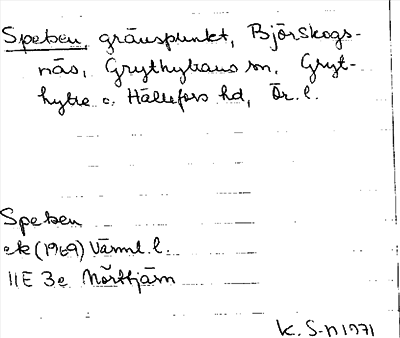 Speben, gränspunkt, Björskogs-
näs, Grythyttans sn, Gryt-
hytte o. Hällefors hd, Ör. l.
Speben
ek (1969) Värml. l.
11E 3e Norttjärn
K. S-n 1971